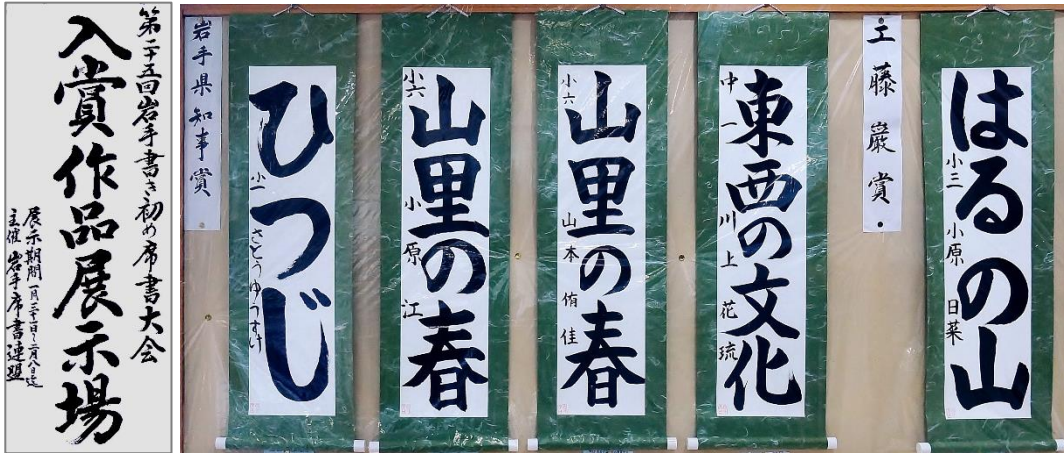 第二十五回岩手書き初め席書大会
入賞作品展示場
展示期間一月三十一日〜二月八日迄
主催 岩手席書連盟
岩手県知事賞
ひつじ
小一 さとうゆうすけ
山里の春
小六 小原 江
山里の春
小六 山本侑佳
東西の文化
中一 川上花琉
工藤巌賞
はるの山
小三 小原日菜